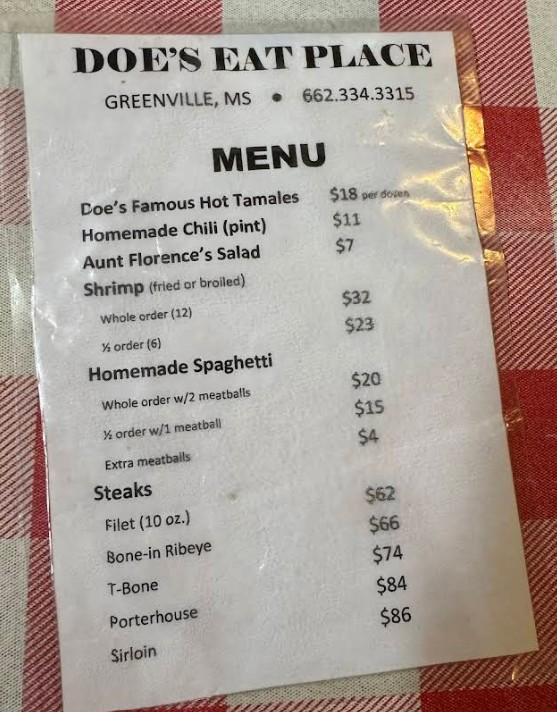 DOE'S EAT PLACE
GREENVILLE, MS • 662.334.3315
MENU
Doe's Famous Hot Tamales $18 per dozen
Homemade Chili (pint) $11
Aunt Florence's Salad $7
Shrimp (fried or broiled)
Whole order (12) $32
½ order (6) $23
Homemade Spaghetti
Whole order w/2 meatballs $20
½ order w/1 meatball $15
Extra meatballs $4
Steaks
Filet (10 oz.) $62
Bone-in Ribeye $66
T-Bone $74
Porterhouse $84
Sirloin $86